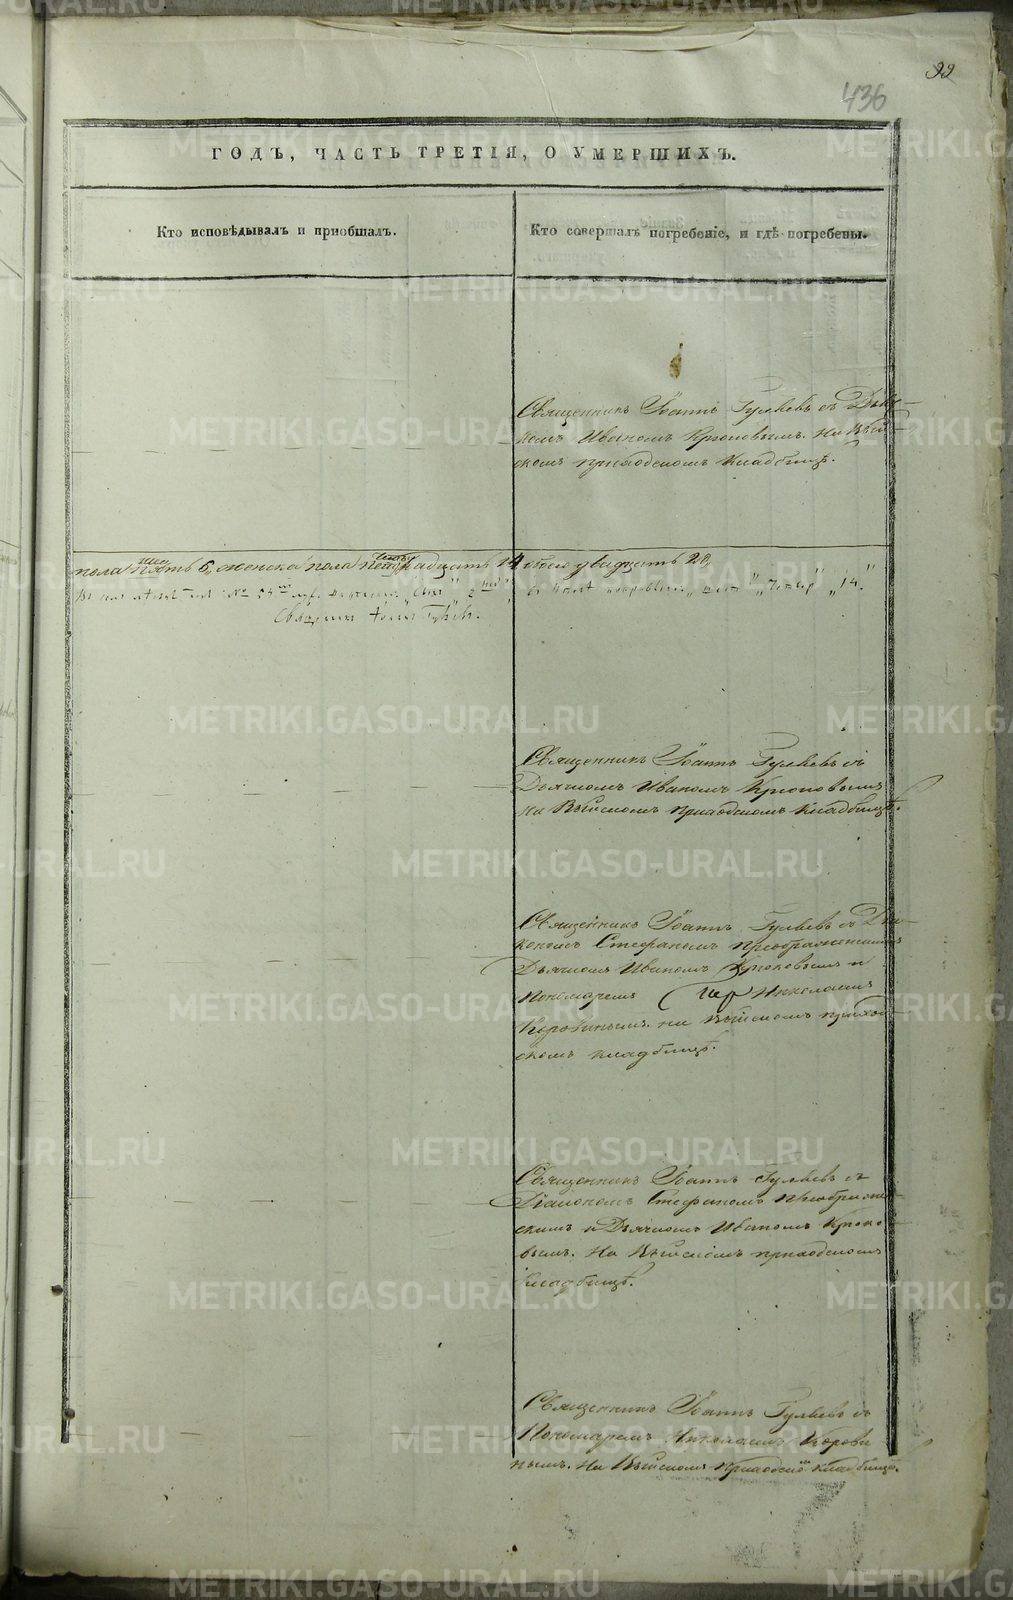 99
436
ГОДЪ, ЧАСТЬ ТРЕТІЯ, О УМЕРШИХЪ.
Кто исповѣдывалъ и пріобщалъ.
Кто совершалъ погребеніе, и гдѣ погребены.
Священникъ Іоаннъ Гуляевъ съ Дьяч-
комъ Иваномъ Крюковымъ. На Вый-
скомъ приходскомъ кладбищѣ.
пола 6, женска пола 14 обоего двадцать 20,
14.
Священникъ Іоаннъ
Священникъ Іоаннъ Гуляевъ съ
Дьячкомъ Иваномъ Крюковымъ
на Выйскомъ приходскомъ кладбищѣ.
Священникъ Іоаннъ Гуляевъ съ Діа-
кономъ Стефаномъ Преображенскимъ
Дьячкомъ Иваномъ Крюковымъ и
Пономаремъ Николаемъ
Коровинымъ. на Выйскомъ приход-
скомъ кладбищѣ.
Священникъ Іоаннъ Гуляевъ съ
Діакономъ Стефаномъ Преображен-
скимъ и Дьячкомъ Иваномъ Крюко-
вымъ. На Выйскомъ приходскомъ
кладбищѣ.
Священникъ Іоаннъ Гуляевъ съ
Пономаремъ Николаемъ Корови
нымъ. На Выйскомъ приходскомъ кладбищѣ.
METRIKI.GASO-URAL.RU